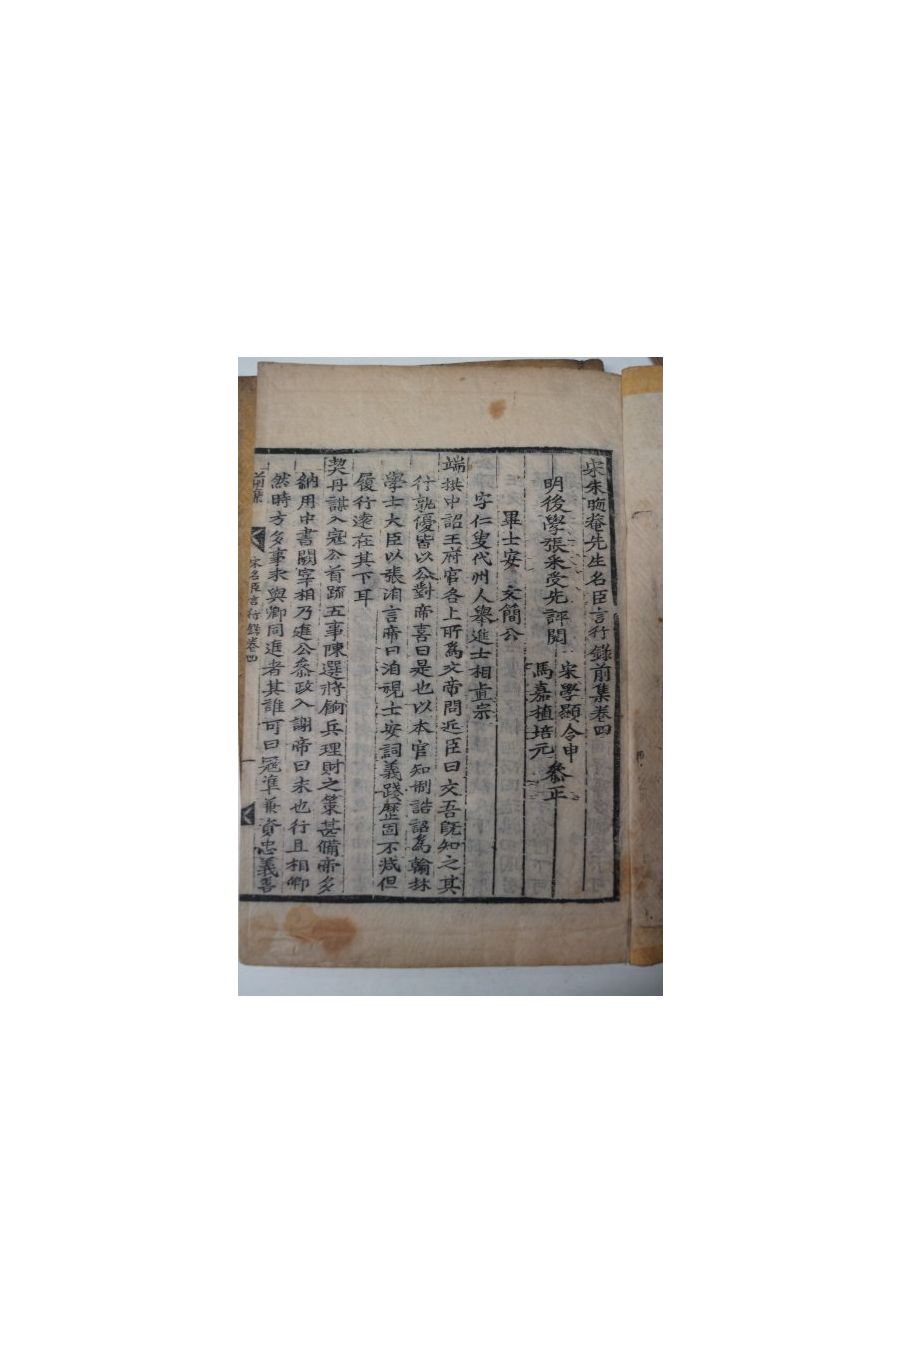 宋朱晦菴先生名臣言行錄前集卷四
明後學張采受先評閱
宋學顯令申
馬嘉植培元
叅正
畢士安 文簡公
字仁叟代州人舉進士相眞宗
端拱中詔王府官各上所爲文帝問近臣曰文吾旣知之其
行孰優皆以公對帝喜曰是也以本官知制誥詔爲翰林
學士大臣以張洎言帝曰洎視士安詞義踐歷固不减但
履行遠在其下耳
契丹謀入寇公首疏五事陳選將餉兵理財之策甚備帝多
納用中書闕宰相乃進公叅政入謝帝曰未也行且相卿
然時方多事求與卿同進者其誰可曰寇準兼資忠義善
前集
宋名臣言行錄卷四